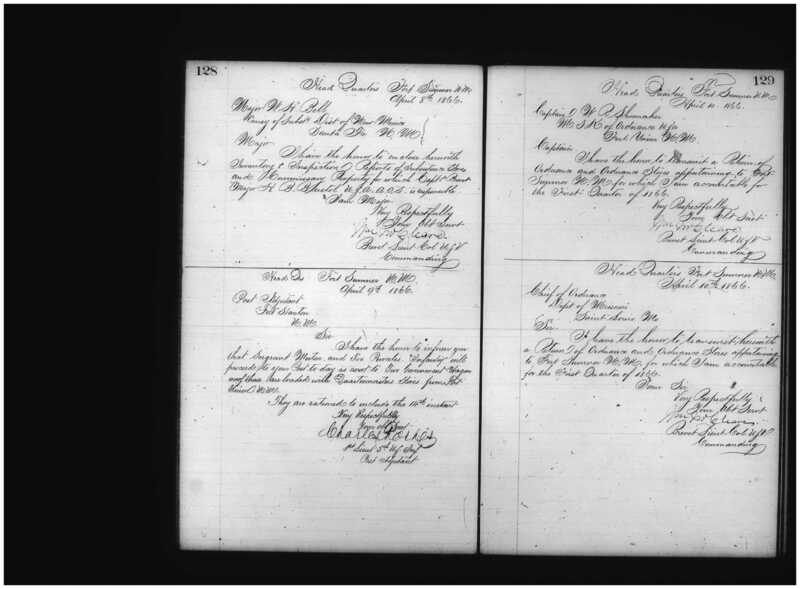 128
Head Quarters Fort Sumner N.M.
April 8th 1866.
Major W. H. Bell
Comsy of Subst. Dist of New Mexico
Santa Fe N. M.
Major
I have the honor to inclose herewith
Inventory & Inspection Reports of Subsistence Stores
and Commissary Property for which Capt & Brevet
Major H. B. Bristol U.S.A. A.C.S. is responsible
I am Major
Very Respectfully
Your Obt Servt
Wm McCleave
Brevet Lieut Col U.S.V.
Commanding
Head Qrs Fort Sumner N.M.
April 9th 1866.
Post Adjutant
Fort Stanton
N. M.
Sir
I have the honor to inform you
that Sergeant and Six Privates Infantry will
proceed to your Post to day as escort to Government Wagons
these are loaded with Quartermasters Stores from Fort
Union N.M.
They are rationed to include the 14th instant
Very Respectfully
Your Obt Servt
Charles Porter
1st Lieut 5th U.S. Inf
Post Adjutant
129
Head Quarters Fort Sumner N.M.
April 10. 1866.
Captain W. R. Shoemaker
M. S. K. of Ordnance U.S.A.
Fort Union N. M.
Captain
I have the honor to transmit a Return of
Ordnance and Ordnance Stores appertaining to Fort
Sumner N. M. for which I am accountable for
the First Quarter of 1866.
Very Respectfully
Your Obt Servt
Wm McCleave
Brevet Lieut. Col U.S.V.
Commanding
Head Quarters Fort Sumner N.M.
April 10th, 1866.
Chief of Ordnance
Dept of Missouri
Saint Louis Mo.
Sir
I have the honor to herewith
a Return of Ordnance and Ordnance Stores appertaining
to Fort Sumner N. M. for which I am accountable
for the First Quarter of 1866.
I am Sir
Very Respectfully
Your Obt Servt
Wm McCleave
Brevet Lieut. Col U.S.V.
Commanding